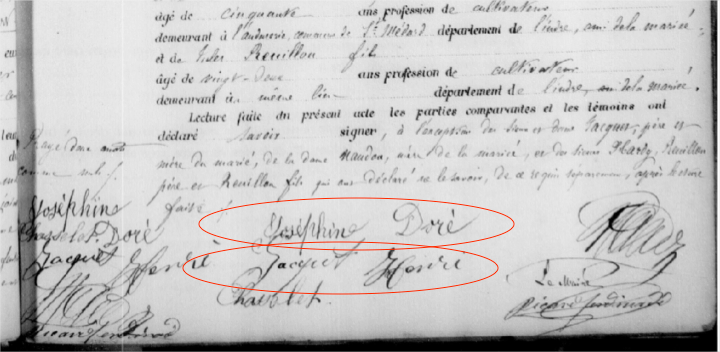 âgé de cinquante ans profession de cultivateur
demeurant à commune de St Médard département de l'indre, ami de la mariée
et de Jules Preuillon fils
âgé de vingt-deux ans profession de cultivateur
demeurant au même lieu département de l'indre, ami de la mariée.
Lecture faite du présent acte les parties comparantes et les témoins ont
déclaré savoir signer, à l'exception des sieur et dame Jacquet, père et
mère du marié, de la dame mère de la mariée, et des sieurs Preuillon
père et Preuillon fils qui ont déclaré ne le savoir, de ce requis séparément, après lecture
faite
Rayé deux mots
comme nuls
Joséphine
Chasselet Doré
Jacquet Henri
Joséphine Doré
Jacquet Henri
Chasselet
Le Maire
Picard Ferdinand
Picard Ferdinand